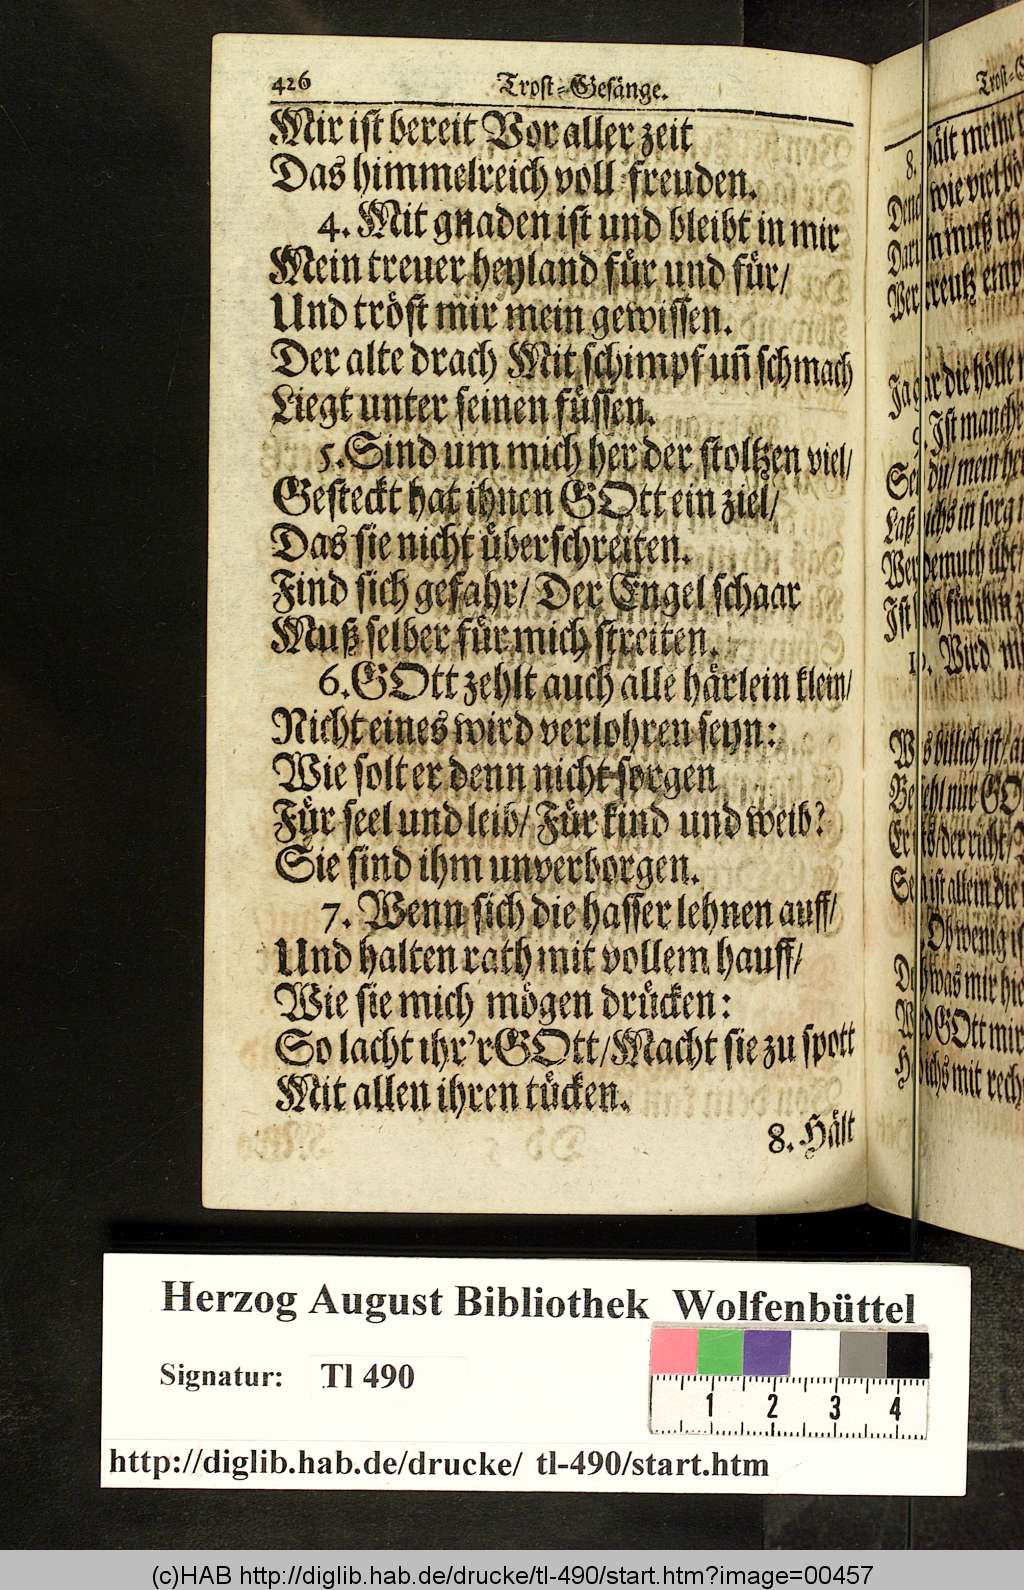 426
Trost-Gesänge.
Mir ist bereit Vor aller zeit
Das himmelreich voll freuden.
4. Mit gnaden ist und bleibt in mir
Mein treuer heyland für und für/
Und tröst mir mein gewissen.
Der alte drach Mit schimpf uñ schmach
Liegt unter seinen füssen.
5. Sind um mich her der stoltzen viel/
Gesteckt hat ihnen GOtt ein ziel/
Das sie nicht überschreiten.
Find sich gefahr/ Der Engel schaar
Muß selber für mich streiten.
6. GOtt zehlt auch alle härlein klein/
Nicht eines wird verlohren seyn:
Wie solt er denn nicht sorgen
Für seel und leib/ Für kind und weib?
Sie sind ihm unverborgen.
7. Wenn sich die hasser lehnen auff/
Und halten rath mit vollem hauff/
Wie sie mich mögen drücken:
So lacht ihr'r GOtt/ Macht sie zu spott
Mit allen ihren tücken.
8. Hält
Trost-
8. Hält meine
wie viel
muß ich
die hölle
Ist manche
du/ mein
in sorg
demuth übt/
für ihm
10. Wird
billich ist/
nur GO
der richt/
ist allein die
Ob wenig
was mir hie
GOtt mir
ichs mit
Herzog August Bibliothek Wolfenbüttel
Signatur: Tl 490
1 2 3 4
http://diglib.hab.de/drucke/ tl-490/start.htm
(c)HAB http://diglib.hab.de/drucke/tl-490/start.htm?image=00457